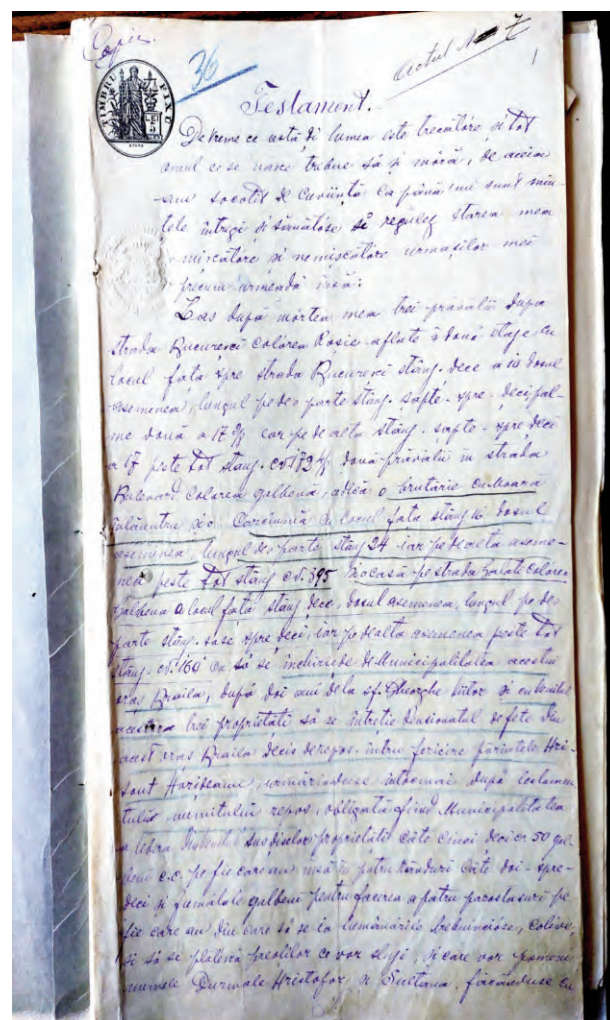 Copie.
36
Actul No 7
1
TIMBRU FIXU
Testament.
De vreme ce astă di lumea este trecătóre și tot
omul ce se nasce trebue să și móră, de aceia
am socotit de cuviință ca până 'mi sunt min-
țele întregi și sănătóse să regulez starea mea
mișcătóre și nemișcătóre urmașilor mei
precum urmeadă însă:
Las după mórtea mea trei prăvălii după
strada Bucuresci colórea Rosie aflate în două etage cu
locul fața spre strada Bucuresci stânj. dece a 10 dosul
asemenea, lungul pe de o parte stânj. șapte-spre-deci pal-
me două a 17 2/8 ear pe de alta stânj. șapte-spre deci
a 17 peste tot stânj. cd. 172 4/8 două prăvălii în strada
Bulevard colórea galbenă, adică o brutărie cu moară
înlăuntru și o Carciumă cu locul fața stânj 16 dosul
asemenea, lungul de o parte stânj 24 iar pe de alta aseme-
nea peste tot stânj cd. 395 și o casă pe strada Galați colórea
Galbenă a locul fața stânj dece, dosul asemenea, lungul pe de o
parte stânj. șase spre deci, iar pe de alta asemenea peste tot
stânj. cd. 160 ca să se închirieze de Municipalitatea acestui
oraș Braila, după doi ani de la sf. Gheorghe viitor și cu venitul
acestora trei proprietăți să se întreție Pensionatul de fete din
acest oraș Braila decis de repos. întru fericire părintele Hri-
sant Horideanu, urmărinduse întocmai după testamen-
tului numitului repos, obligată fiind Municipalitatea
a libera din venitul sus diselor proprietăți câte cinci deci a 50 gal-
beni c.c. pe fie care an însă în patru rânduri câte doi-spre-
deci și jumătate galbeni pentru facerea a patru parastasuri pe
fie care an din care să se ia lumânările trebuincióse, colive,
și să se plătéscă preoților ce vor sluji, și care vor pomeni
numele Durmale Hristofor și Sultana, făcânduse cu